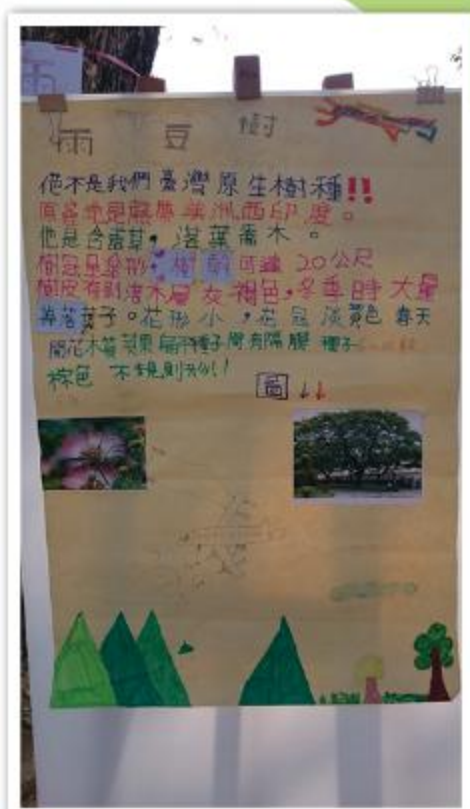 雨豆樹
他不是我們臺灣原生樹種!!
原產地是熱帶美洲西印度。
他是含羞草,落葉喬木。
樹冠呈傘形,樹高可達20公尺
樹皮有剝落木層灰褐色,冬季時大量
掉落葉子。花形小,花冠淡黃色 春天
開花木質莢果每个種子間有隔膜 種子
棕色 不規則
圖↓↓